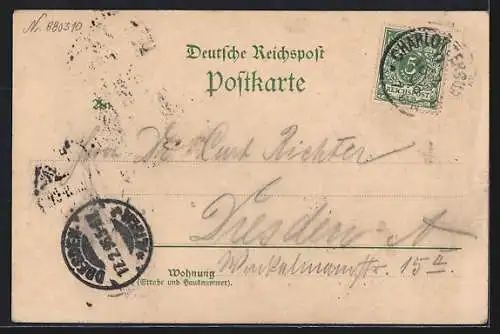 Nr. 880310
Deutsche Reichspost
Postkarte
An
CHARLOTTENBURG
5
REICHSPOST
Herrn Dr. Curt Richter
Dresden-A
Winkelmannstr. 15 a
DRESDEN-ALTST.
Wohnung
(Straße und Hausnummer).